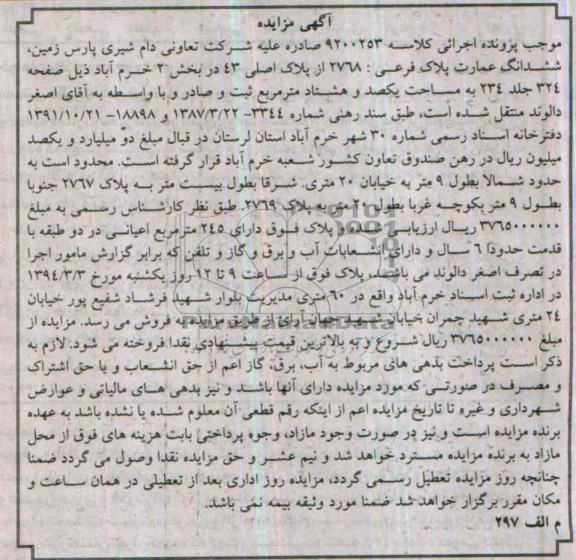 آگهی مزایده
موجب پرونده اجرائی کلاسه ۹۲۰۰۲۵۳ صادره علیه شرکت تعاونی دام شیری پارس زمین،
ششدانگ عمارت پلاک فرعی : ۲۷۶۸ از پلاک اصلی ۴۳ در بخش ۲ خرم آباد ذیل صفحه
۳۲۴ جلد ۲۳۴ به مساحت یکصد و هشتاد مترمربع ثبت و صادر و با واسطه به آقای اصغر
دالوند منتقل شده است، طبق سند رهنی شماره ۳۳۴۴- ۱۳۸۷/۳/۲۲ و ۱۸۸۹۸- ۱۳۹۱/۱۰/۲۱
دفترخانه اسناد رسمی شماره ۳۰ شهر خرم آباد استان لرستان در قبال مبلغ دو میلیارد و یکصد
میلیون ریال در رهن صندوق تعاون کشور شعبه خرم آباد قرار گرفته است. محدود است به
حدود شمالا بطول ۹ متر به خیابان ۲۰ متری. شرقا بطول بیست متر به پلاک ۲۷۶۷ جنوبا
بطول ۹ متر بکوچه غربا بطول ۲۰ متر به پلاک ۲۷۶۹. طبق نظر کارشناس رسمی به مبلغ
۳۷۶۵۰۰۰۰۰۰ ریال ارزیابی پلاک فوق دارای ۲۴۵ مترمربع اعیانی در دو طبقه با
قدمت حدودا ۶ سال و دارای انشعابات آب و برق و گاز و تلفن که برابر گزارش مامور اجرا
در تصرف اصغر دالوند می باشد، پلاک فوق از ساعت ۹ تا ۱۲ روز یکشنبه مورخ ۱۳۹۴/۳/۳
در اداره ثبت اسناد خرم آباد واقع در ۶۰ متری مدیریت بلوار شهید فرشاد شفیع پور خیابان
۲۴ متری شهید چمران خیابان شهید جهان آرای از طریق مزایده به فروش می رسد. مزایده از
مبلغ ۳۷۶۵۰۰۰۰۰۰ ریال شروع و به بالاترین قیمت پیشنهادی نقدا فروخته می شود: لازم به
ذکر است پرداخت بدهی های مربوط به آب، برق، گاز اعم از حق انشعاب و یا حق اشتراک
و مصرف در صورتی که مورد مزایده دارای آنها باشد و نیز بدهی های مالیاتی و عوارض
شهرداری و غیره تا تاریخ مزایده اعم از اینکه رقم قطعی آن معلوم شده یا نشده باشد به عهده
برنده مزایده است و نیز در صورت وجود مازاد، وجوه پرداختی بابت هزینه های فوق از محل
مازاد به برنده مزایده مسترد خواهد شد و نیم عشر و حق مزایده نقدا وصول می گردد ضمنا
چنانچه روز مزایده تعطیل رسمی گردد، مزایده روز اداری بعد از تعطیلی در همان ساعت و
مکان مقرر برگزار خواهد شد ضمنا مورد وثیقه بیمه نمی باشد.
م الف ۲۹۷